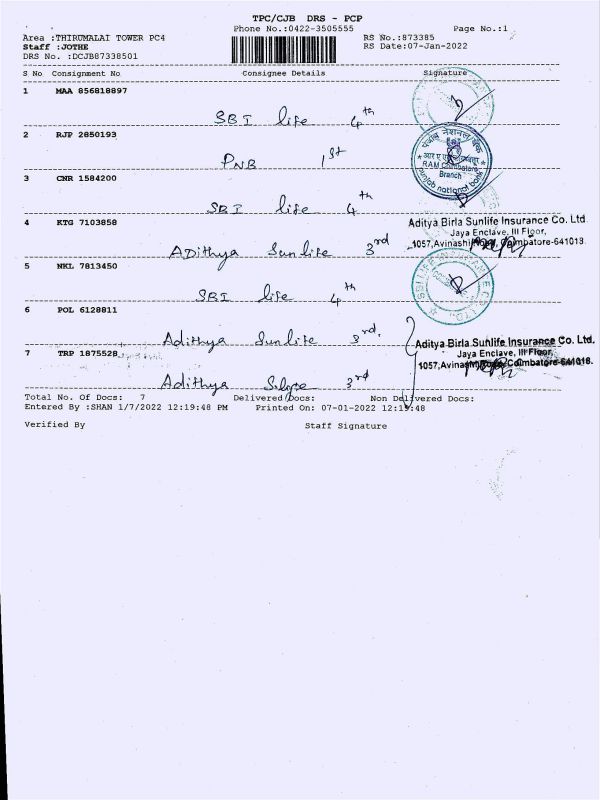 TPC/CJB DRS - PCP
Phone No.:0422-3505555 Page No.:1
Area :THIRUMALAI TOWER PC4 RS No.:873385
Staff :JOTHE RS Date:07-Jan-2022
DRS No. :DCJB87338501
S No Consignment No Consignee Details Signature
1 MAA 856818897
SBI life 4th
2 RJP 2850193
पंजाब नेशनल बैंक
RAM Coimbatore
Branch
punjab national bank
PNB 1st
3 CNR 1584200
SBI life 4th
4 KTG 7103858 Aditya Birla Sunlife Insurance Co. Ltd
Jaya Enclave, III Floor,
1057,Avinashi Coimbatore-641018.
ADithya Sunlife 3rd
5 NKL 7813450
SBI LIFE INSURANCE CO. LTD.
SBI life 4th
6 POL 6128811
Adithya Sunlife 3rd.
Aditya Birla Sunlife Insurance Co. Ltd.
7 TRP 1875528 Jaya Enclave, III Floor,
1057,Avinashi Coimbatore-641018.
Adithya 3rd
Total No. Of Docs: 7 Delivered Docs: Non Delivered Docs:
Entered By :SHAN 1/7/2022 12:19:48 PM Printed On: 07-01-2022 12:19:48
Verified By Staff Signature